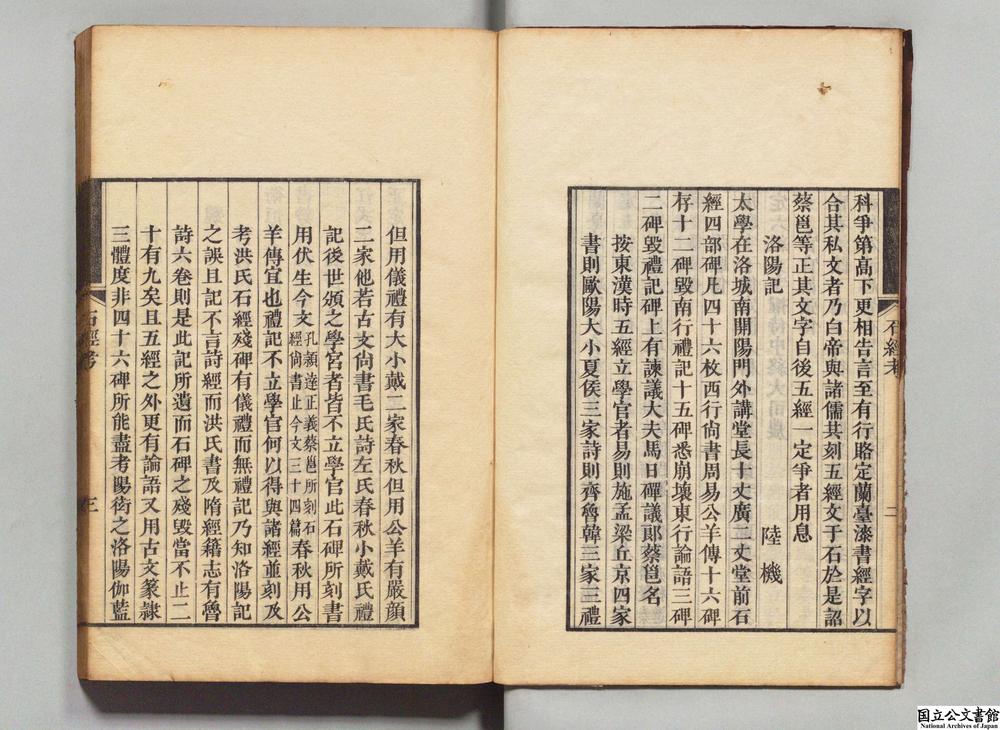 科爭第高下更相告言至有行賂定蘭臺漆書經字以
合其私文者乃白帝與諸儒共刻五經文于石於是詔
蔡邕等正其文字自後五經一定爭者用息
洛陽記 陸機
太學在洛城南開陽門外講堂長十丈廣二丈堂前石
經四部碑凡四十六枚西行尚書周易公羊傳十六碑
存十二碑毀南行禮記十五碑悉崩壞東行論語三碑
二碑毀禮記碑上有諫議大夫馬日磾議郎蔡邕名
按東漢時五經立學官者易則施孟梁丘京四家
書則歐陽大小夏侯三家詩則齊魯韓三家三禮
石經考
二
但用儀禮有大小戴二家春秋但用公羊有嚴顏
二家他若古文尚書毛氏詩左氏春秋小戴氏禮
記後世頒之學宮者皆不立學官此石碑所刻書
用伏生今文孔穎達正義蔡邕所刻石經尚書止今文三十四篇春秋用公
羊傳宜也禮記不立學官何以得與諸經並刻及
考洪氏石經殘碑有儀禮而無禮記乃知洛陽記
之誤且記不言詩經而洪氏書及隋經籍志有魯
詩六卷則是此記所遺而石碑之殘毀當不止二
十有九矣且五經之外更有論語又用古文篆隸
三體度非四十六碑所能盡考陽衒之洛陽伽藍
石經考
三
国立公文書館
National Archives of Japan